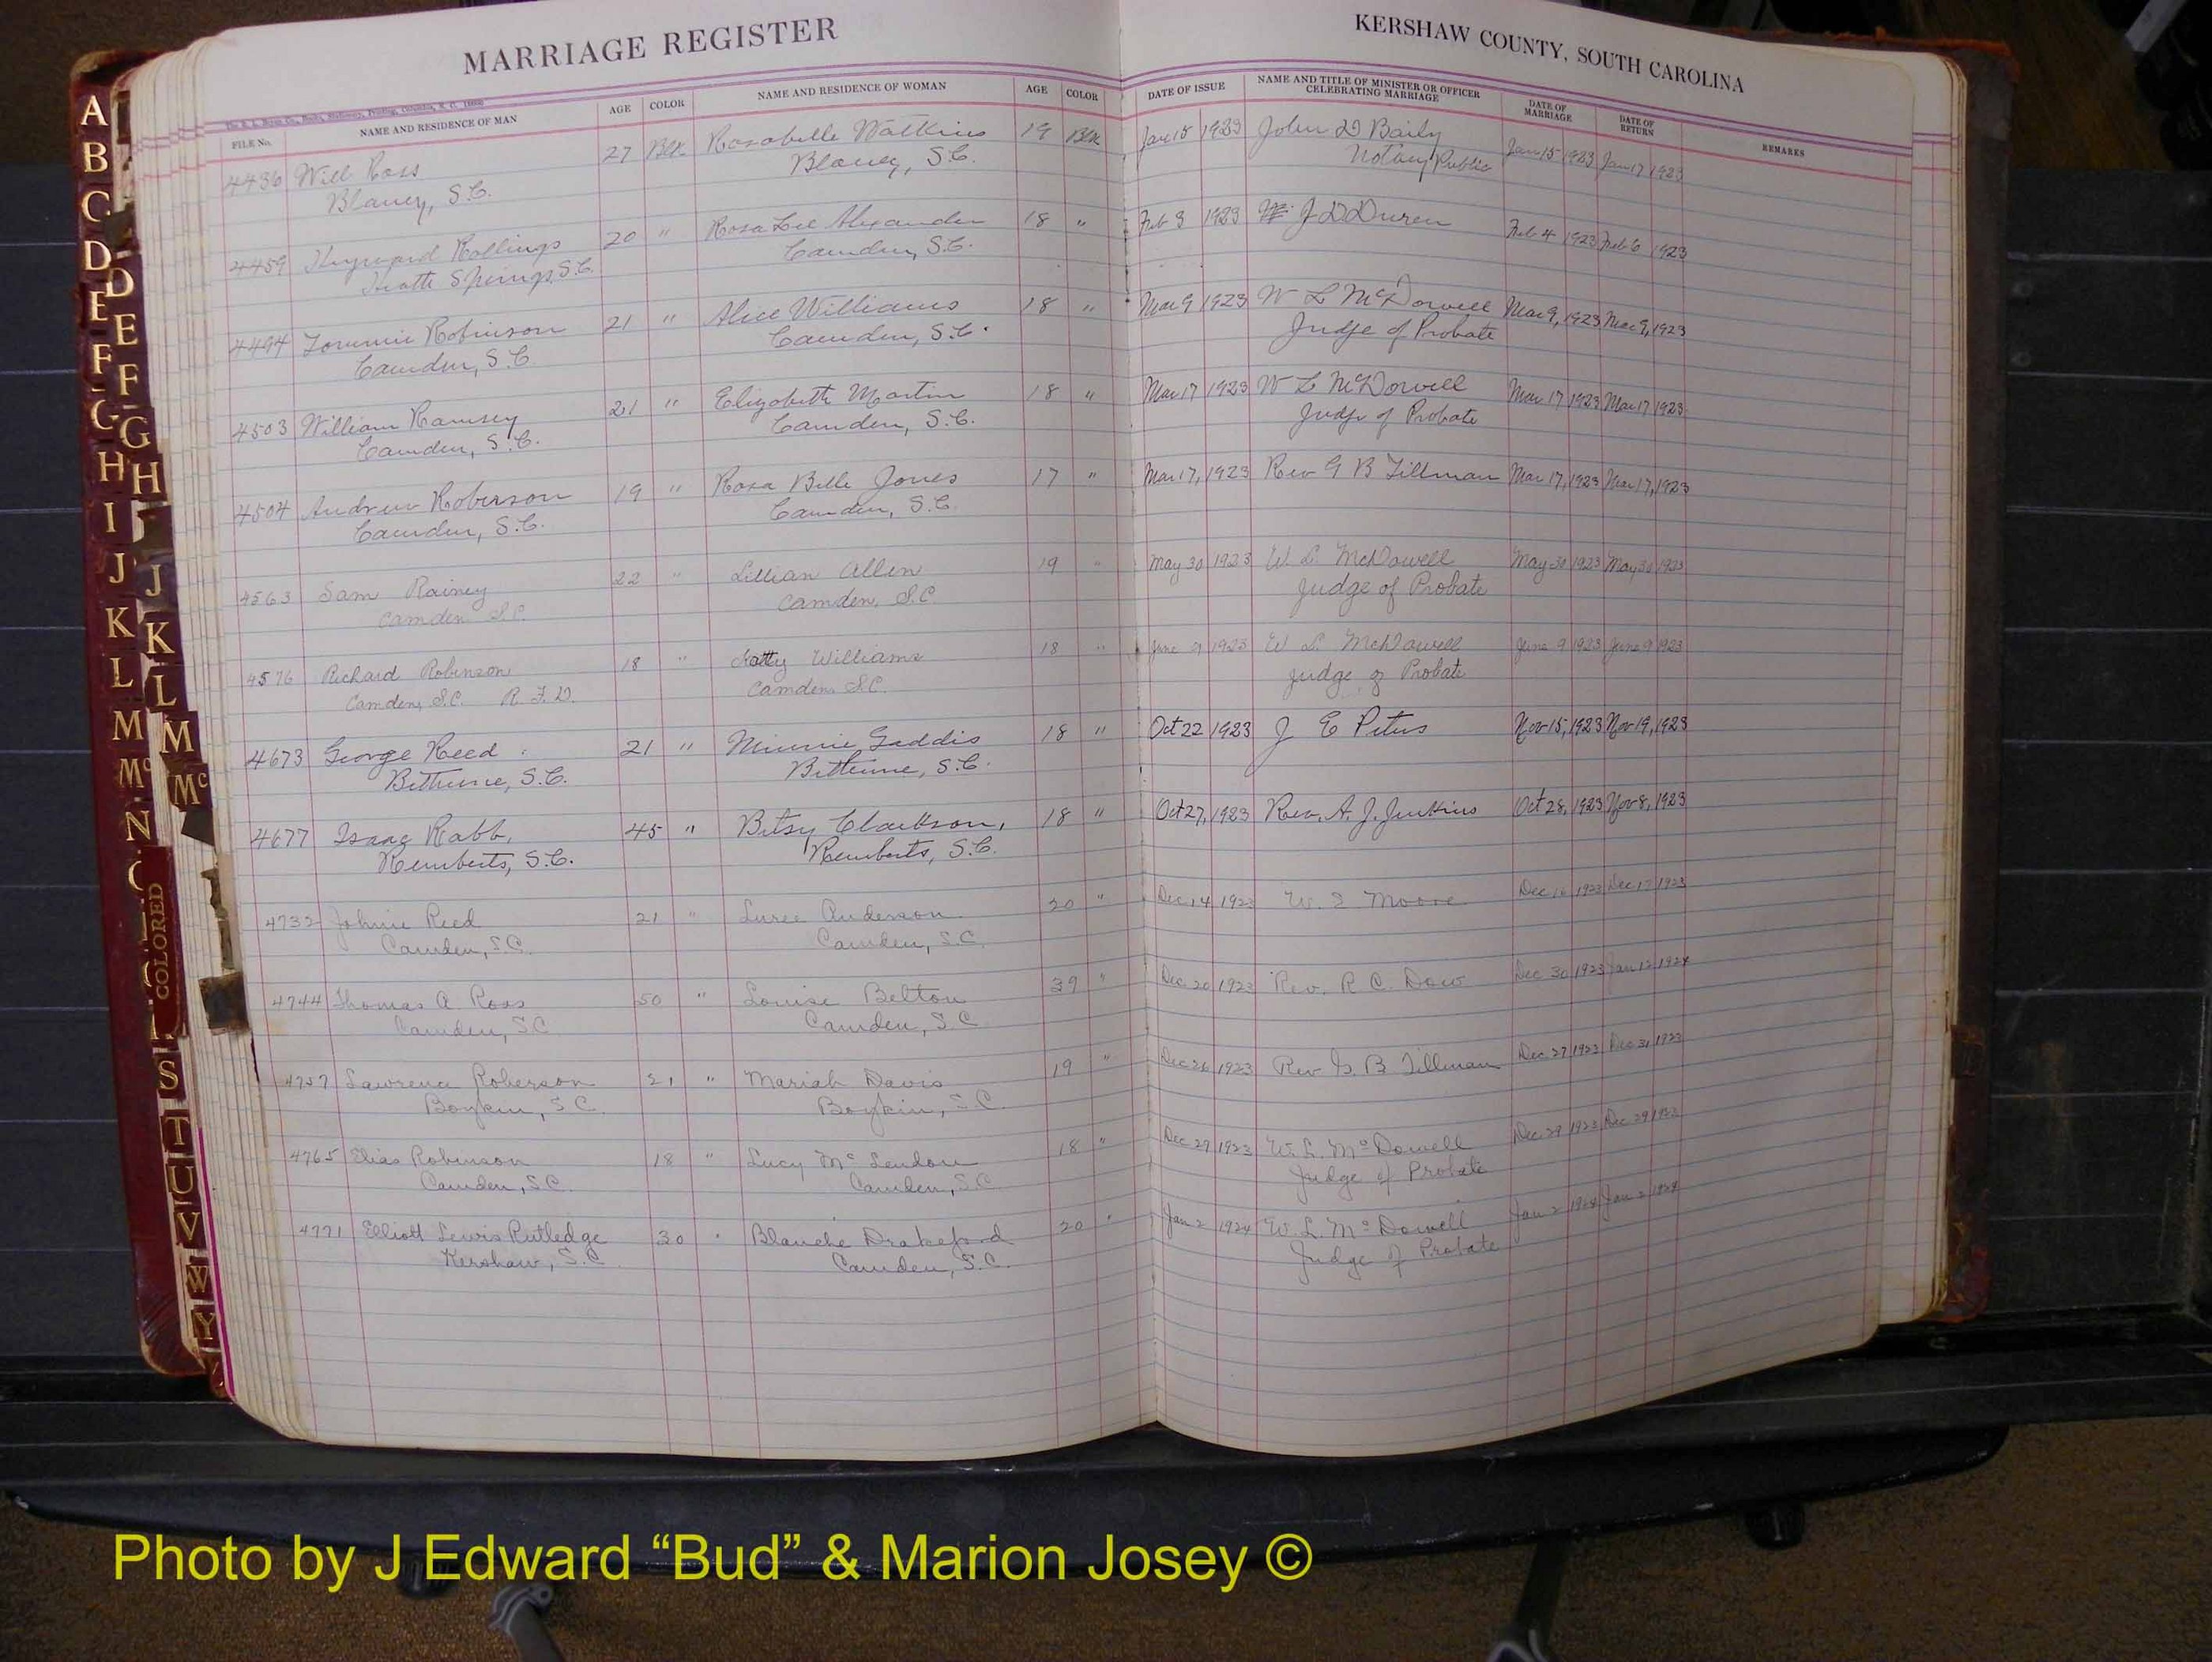 MARRIAGE REGISTER
KERSHAW COUNTY, SOUTH CAROLINA
FILE No. NAME AND RESIDENCE OF MAN AGE COLOR NAME AND RESIDENCE OF WOMAN AGE COLOR DATE OF ISSUE NAME AND TITLE OF MINISTER OR OFFICER CELEBRATING MARRIAGE DATE OF MARRIAGE DATE OF RETURN REMARKS
4436 Will Ross 27 Blk Rosabelle Watkins 19 Blk Jan 15 1923 John D Baily Jan 15 1923 Jan 17 1923
Blaney, S.C. Blaney, S.C. Notary Public
4459 Heyward Rollings 20 " Rosa Lee Alexander 18 " Feb 3 1923 J D Duren Feb 4 1923 Feb 6 1923
Springs, S.C. Camden, S.C.
4494 Tommie Robinson 21 " Alice Williams 18 " Mar 9 1923 W L McDowell Mar 9, 1923 Mar 9, 1923
Camden, S.C Camden, S.C. Judge of Probate
4503 William Ramsey 21 " Elizabeth Martin 18 " Mar 17 1923 W L McDowell Mar 17 1923 Mar 17 1923
Camden, S.C. Camden, S.C. Judge of Probate
4504 Andrew Roberson 19 " Rosa Belle Jones 17 " Mar 17, 1923 Rev G B Tillman Mar 17, 1923 Mar 17, 1923
Camden, S.C. Camden, S.C.
4563 Sam Rainey 22 " Lillian Allen 19 " May 30 1923 W. L. McDowell May 30 1923 May 30 1923
Camden S.C. Camden, S.C. Judge of Probate
4576 Richard Robinson 18 " Williams 18 " June 9 1923 W L. McDowell June 9 1923 June 9 1923
Camden, S.C. R.F.D. Camden S.C. Judge of Probate
4673 George Reed 21 " Minnie Gaddis 18 " Oct 22 1923 J E Peters Nov 15, 1923 Nov 19, 1923
Bethune, S.C. Bethune, S.C.
4677 Isaac Rabb, 45 " Betsy Clarkson, 18 " Oct 27, 1923 Rev. A. J. Jenkins Oct 28, 1923 Nov 8, 1923
Remberts, S.C. Remberts, S.C.
4732 Johnie Reed 21 " Anderson 20 " Dec 14 1923 Moore Dec 16 1923 Dec 17 1923
Camden, S.C. Camden, S.C.
4744 Thomas A Ross 50 " Louise Belton 39 " Dec 20 1923 Rev. R C. Dow Dec 30 1923 Jan 12 1924
Camden, S.C Camden, S.C
4757 Lawrence Roberson 21 " Mariah Davis 19 " Dec 26 1923 Rev G. B Tillman Dec 27 1923 Dec 31 1923
Boykin, S.C. Boykin, S.C.
4765 Elias Robinson 18 " Lucy McLendon 18 " Dec 29 1923 W. L. McDowell Dec 29 1923 Dec 29 1923
Camden, S.C. Camden, S.C. Judge of Probate
4771 Elliott Lewis Rutledge 30 " Blanche Drakeford 20 " Jan 2 1924 W. L. McDowell Jan 2 1924 Jan 2 1924
Kershaw, S.C. Camden, S.C. Judge of Probate
A
B
C
D
E
F
G
H
I
J
K
L
M
Mc
N
D
E
F
G
H
J
K
L
M
Mc
COLORED
S
T
U
V
W
Y
Photo by J Edward “Bud” & Marion Josey ©